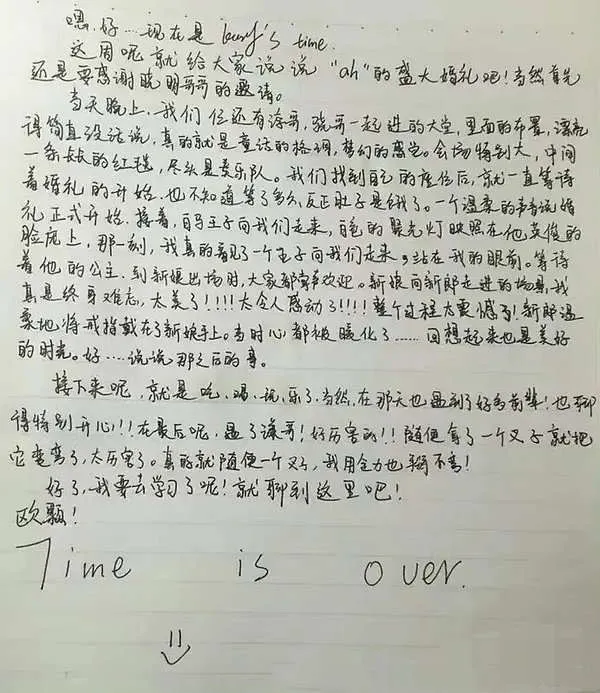 嗯,好……现在是 karry's time.
这周呢就给大家说说 "ah" 的盛大婚礼吧!当然首先
还是要感谢晓明哥哥的邀请。
当天晚上,我们仨还有涛哥,骁哥一起进的大堂,里面的布置,漂亮
得简直没话说,真的就是童话的格调,梦幻的感觉。会场特别大,中间
一条长长的红毯,尽头是交乐队。我们找到自己的座位后,就一直等待
着婚礼的开始.也不知道等了多久,反正肚子是饿了。一个温柔的声音说婚
礼正式开始.接着,白马王子向我们走来,白色的聚光灯映照在他英俊的
脸庞上,那一刻,我真的看见了一个王子向我们走来,站在我的眼前。等待
着他的公主.到新娘出场时,大家都掌声欢迎。新娘向新郎走进的场景,我
真是终身难忘,太美了!!!!太令人感动了!!!!整个过程太震憾了!新郎温
柔地将戒指戴在了新娘手上。当时心都被暖化了……回想起来也是美好
的时光。好……说说那之后的事。
接下来呢,就是吃、喝、玩、乐了.当然,在那天也遇到了好多前辈!也聊
得特别开心!!!在最后呢,遇了谦哥!好厉害的!!随便拿了一个叉子就把
它变弯了,太厉害了。真的就随便一个叉子,我用全力也掰不弯!
好了,我要去学习了呢!就聊到这里吧!
欧颗!
Time is over.